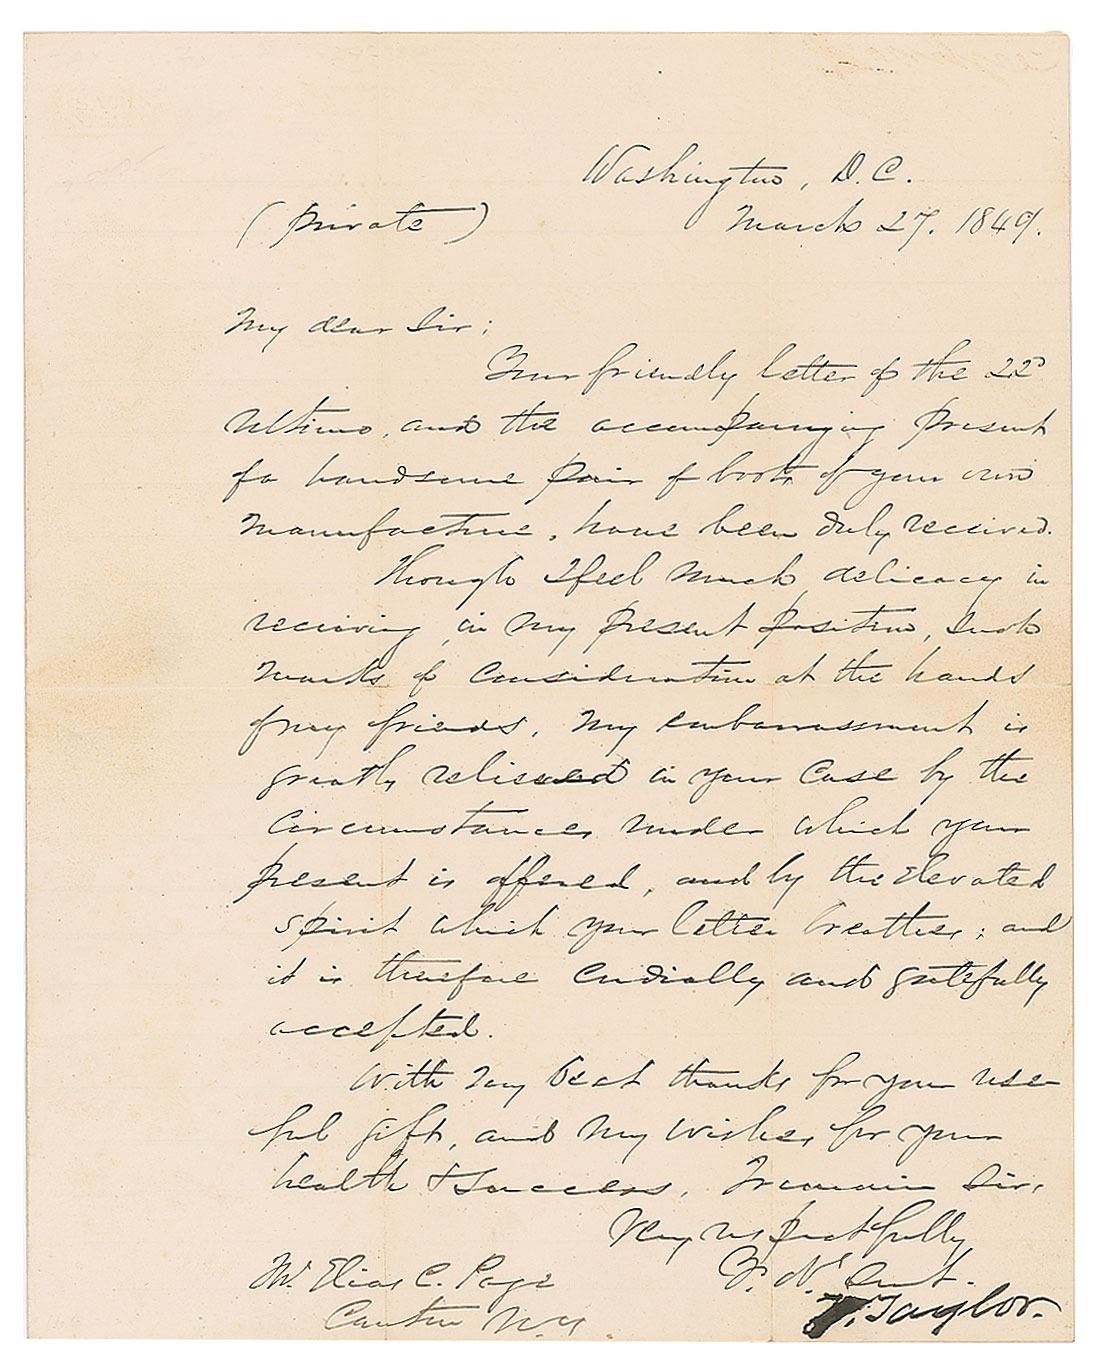 Washington, D.C.
(Private)
March 27. 1849.
My dear Sir:
Your friendly letter of the 22d
Ultimo, and the accompanying present
of a handsome pair of boots of your own
manufacture, have been duly received.
Though I feel much delicacy in
receiving, in my present position, such
marks of consideration at the hands
of my friends, my embarrassment is
greatly relieved in your case by the
circumstances under which your
present is offered, and by the elevated
spirit which your letter breathes; and
it is therefore cordially and gratefully
accepted.
With my best thanks for your use-
ful gift, and my wishes for your
health & success, I remain Sir,
Very respectfully
Yr. Obt. Servt.
Z. Taylor.
Mr. Elias C. Page
Canton N.Y.